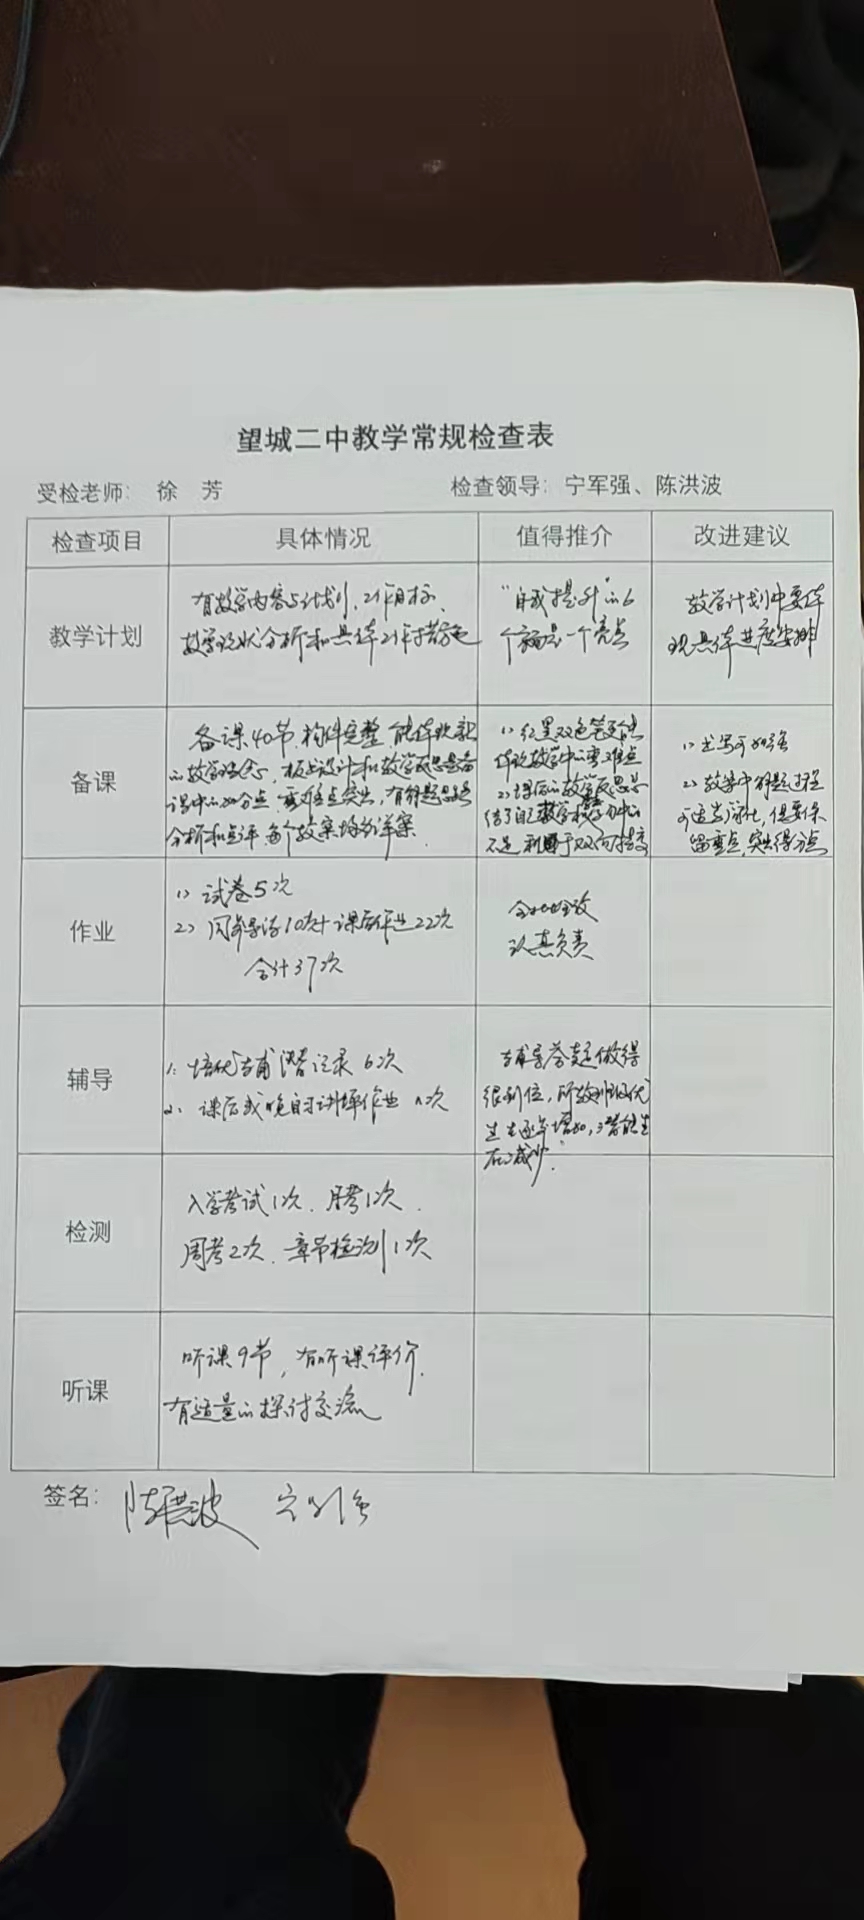 望城二中教学常规检查表
受检老师: 徐 芳 检查领导: 宁军强、陈洪波
检查项目 具体情况 值得推介 改进建议
教学计划
有教学内容与计划, 工作目标、
教学现状分析和具体工作措施
"自我提升"的6
个方面是一个亮点
教学计划中要体
现具体进度安排
备课
备课40节, 构件完整, 能体现新
的教学理念, 板书设计和教学反思是备
课中的加分点, 重难点突出, 有解题思路
分析和点评, 每个教案均为详案
1) 红黑双色笔更能
体现教学中的重难点
2) 课后的教学反思总
结了自己教学中的
不足, 利于双向提高
1) 书写可加强
2) 教案中解题过程
可适当简化, 但要保
留重点, 突出得分点
作业
1) 试卷5次
2) 同步导学10次+课后作业22次
合计37次
全批全改
认真负责
辅导
1. 培优辅潜记录 6次
2. 课后或晚自习讲评作业 n次
很到位, 所教班级优
生逐年增加, 潜能生
在减少.
检测
入学考试1次、月考1次、
周考2次、章节检测1次
听课
听课9节, 有听课评价,
有适量的探讨交流
签名: 陈洪波 宁军强